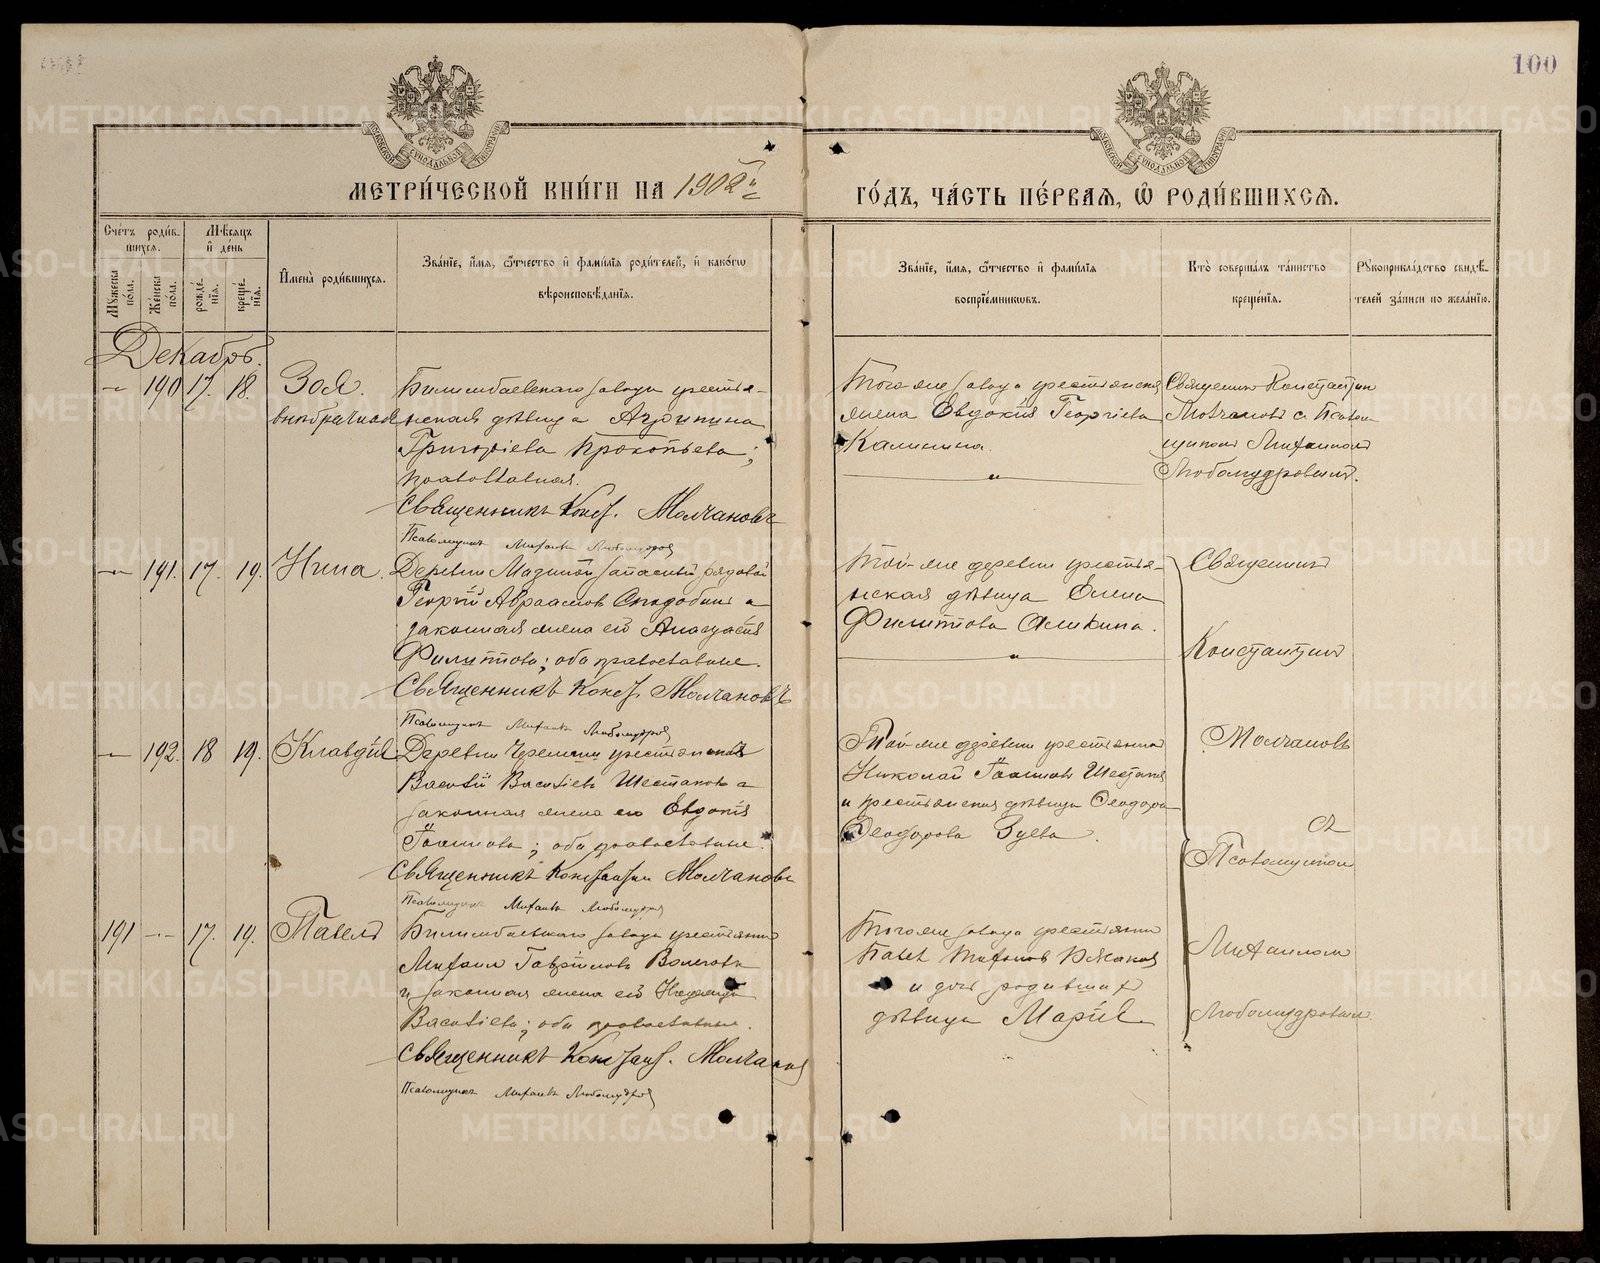 100
МОСКОВСКОЙ СѴНОДАЛЬНОЙ ТИПОГРАФІИ
МОСКОВСКОЙ СѴНОДАЛЬНОЙ ТИПОГРАФІИ
МЕТРИ́ЧЕСКОЙ КНИ́ГИ НА 1902й ГО́ДЪ, ЧА́СТЬ ПЕ́РВАЯ, Ѡ҆ РОДИ́ВШИХСЯ.
Сче́тъ роди́в-
шихся.
Мѣ́сяцъ
и҆ день
Мꙋ́жеска по́ла.
Же́нска по́ла.
рожде́нїя.
креще́нїя.
И҆мена̀ роди́вшихся.
Зва́нїе, и҆́мя, ѻ҆́тчество и҆ фами́лїя роди́телей, и҆ како́гѡ
вѣроисповѣ́данїя.
Зва́нїе, и҆́мя, ѻ҆́тчество и҆ фами́лїя
воспрїе́мникѡвъ.
Кто̀ соверша́лъ та́инство
креще́нїя.
Рꙋкоприкла́дство свидѣ́-
телей за́писи по жела́нїю.
Декабрь.
190 17. 18. Зоя.
внѣбрачная
Билимбаевскаго завода крестья-
нская дѣвица Агрипина
Григоріева Прокопьева;
православная.
Священникъ Конст. Молчановъ
Псаломщикъ Михаилъ Любомудровъ
Того же завода крестьянская
жена Евдокія Георгіева
Калинина.
Священникъ Константин
Молчановъ съ Псалом
щикомъ Михаиломъ
Любомудровымъ.
191. 17. 19. Нина.
Деревни запасный рядовой
Георгій Авраамовъ и
законная жена его Анастасія
Филиппова; оба православные.
Священникъ Конст. Молчановъ
Псаломщикъ Михаилъ Любомудровъ
Той же деревни крестья-
нская дѣвица Елена
Филиппова Аликина.
Священникъ
Константинъ
Молчановъ
съ
Псаломщикомъ
Михаиломъ
Любомудровымъ
192. 18 19. Клавдія
Деревни крестьянинъ
Василій Васильевъ Шестаковъ и
законная жена его Евдокія
Іоаннова; оба православные.
Священникъ Константин Молчановъ
Псаломщикъ Михаилъ Любомудровъ
Той же деревни крестьянинъ
Николай Іоанновъ Шестаковъ
и крестьянская дѣвица Ѳеодора
Ѳеодорова Зуева.
191 17. 19. Павелъ
Билимбаевскаго завода крестьянинъ
Михаил Гавріиловъ
и законная жена его Надежда
Васильева; оба православные.
Священникъ Констант. Молчановъ
Псаломщикъ Михаилъ Любомудровъ
Того же завода крестьянинъ
Павелъ Тихоновъ
и дочь родившихъ
дѣвица Марія
METRIKI.GASO-URAL.RU